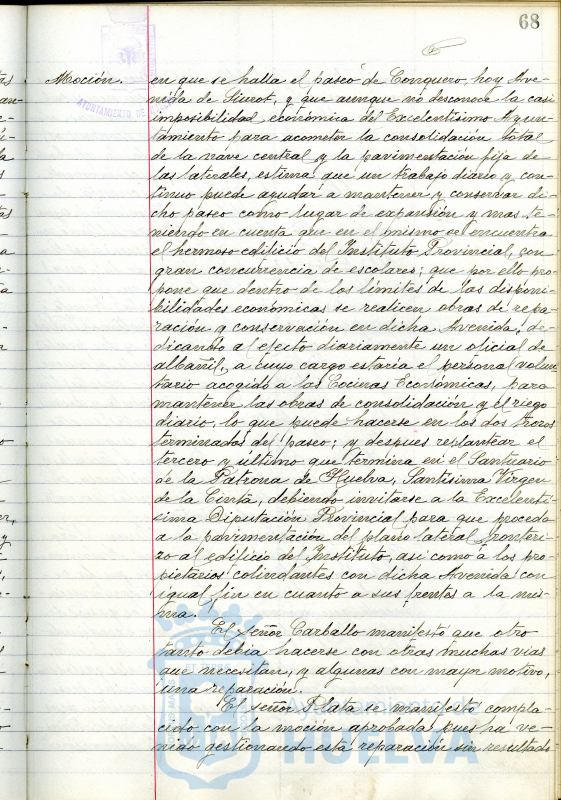 68
Moción.
en que se halla el paseo de Conquero, hoy Ave-
nida de Siurot, y que aunque no desconoce la casi
imposibilidad económica del Excelentísimo Ayun-
tamiento para acometer la consolidación total
de la nave central y la pavimentación fija de
las laterales, estima que un trabajo diario y con-
tinuo puede ayudar a mantener y conservar di-
cho paseo como lugar de expansión y mas te-
niendo en cuenta que en el mismo se encuentra
el hermoso edificio del Instituto Provincial, con
gran concurrencia de escolares; que por ello pro-
pone que dentro de los límites de las disponi-
bilidades económicas se realicen obras de repa-
ración y conservación en dicha Avenida, de-
dicando a efecto diariamente un oficial de
albañil, a cuyo cargo estaría el personal volun-
tario acogido a las Cocinas Económicas, para
mantener las obras de consolidación y el riego
diario, lo que puede hacerse en los dos trozos
terminados del paseo; y despues replantear el
tercero y último que termina en el Santuario
de la Patrona de Huelva, Santísima Virgen
de la Cinta, debiendo invitarse a la Excelentí-
sima Diputación Provincial para que proceda
a la pavimentación del plano lateral fronteri-
zo al edificio del Instituto, asi como a los pro-
pietarios colindantes con dicha Avenida con
igual fin en cuanto a sus frentes a la mis-
ma.
El Señor Carballo manifestó que otro
tanto debía hacerse con otras muchas vias
que necesitan, y algunas con mayor motivo,
una reparación.
El Señor Plata se manifestó compla-
cido con la moción aprobada pues ha ve-
nido gestionando esta reparación sin resultado
AYUNTAMIENTO DE
HUELVA